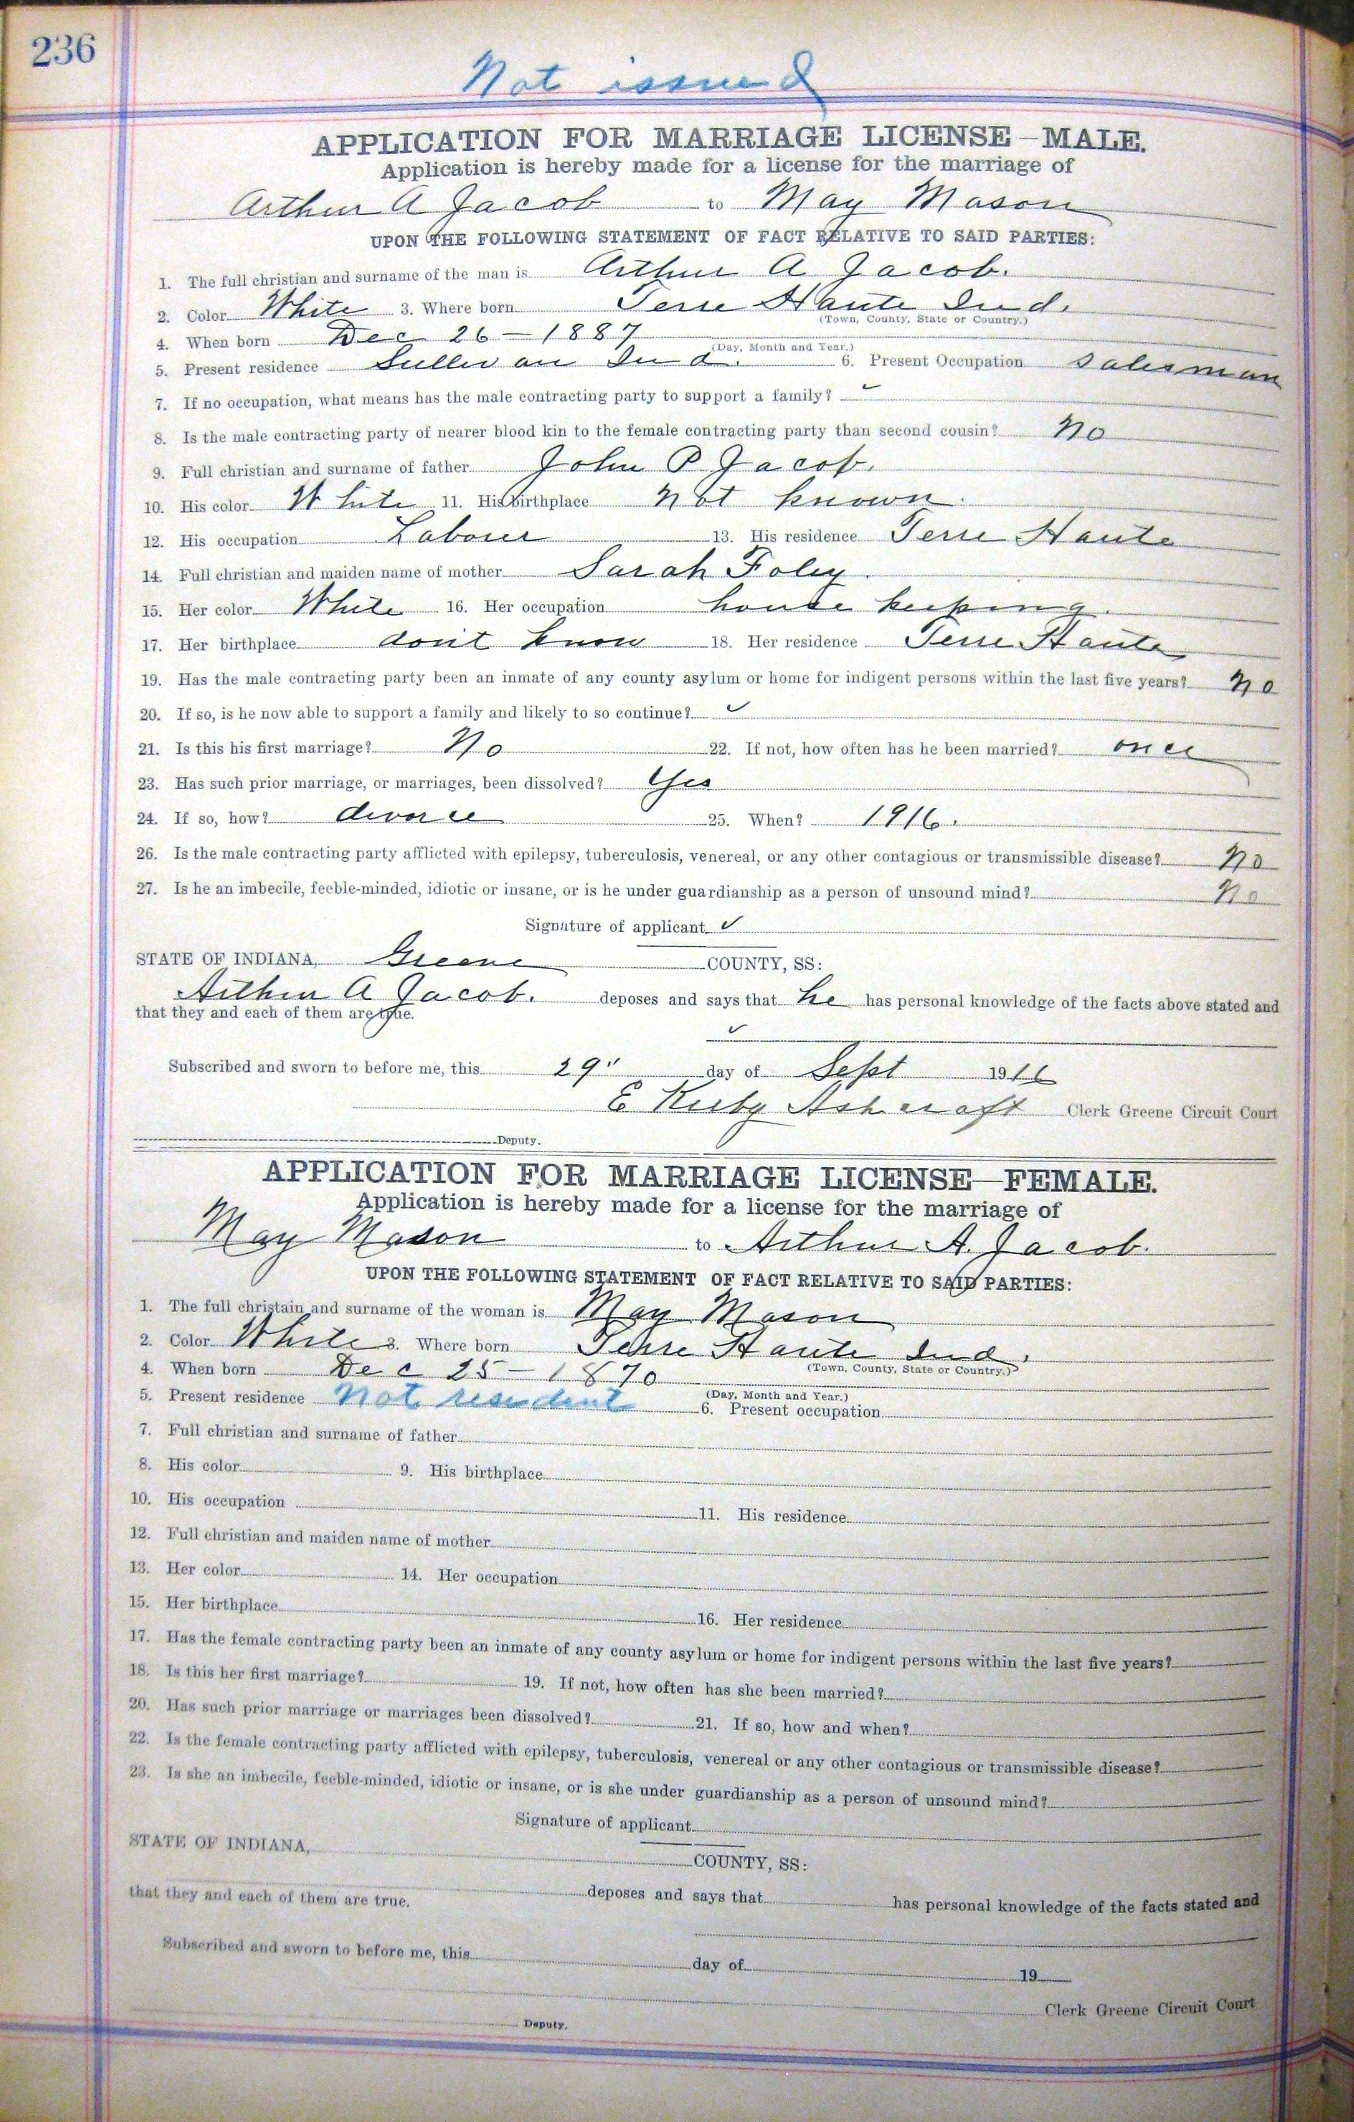 236
Not issued
APPLICATION FOR MARRIAGE LICENSE—MALE.
Application is hereby made for a license for the marriage of
Arthur A Jacob to May Mason
UPON THE FOLLOWING STATEMENT OF FACT RELATIVE TO SAID PARTIES:
1. The full christian and surname of the man is Arthur A Jacob.
2. Color White 3. Where born Terre Haute Ind.
(Town, County, State or Country.)
4. When born Dec 26 - 1887
(Day, Month and Year.)
5. Present residence Sullivan Ind. 6. Present Occupation Salesman
7. If no occupation, what means has the male contracting party to support a family? ✓
8. Is the male contracting party of nearer blood kin to the female contracting party than second cousin? No
9. Full christian and surname of father John P Jacob.
10. His color White 11. His birthplace Not known.
12. His occupation Laborer 13. His residence Terre Haute
14. Full christian and maiden name of mother Sarah Foley.
15. Her color White 16. Her occupation house keeping.
17. Her birthplace don't know 18. Her residence Terre Haute
19. Has the male contracting party been an inmate of any county asylum or home for indigent persons within the last five years? No
20. If so, is he now able to support a family and likely to so continue? ✓
21. Is this his first marriage? No 22. If not, how often has he been married? once
23. Has such prior marriage, or marriages, been dissolved? Yes
24. If so, how? divorce 25. When? 1916.
26. Is the male contracting party afflicted with epilepsy, tuberculosis, venereal, or any other contagious or transmissible disease? No
27. Is he an imbecile, feeble-minded, idiotic or insane, or is he under guardianship as a person of unsound mind? No
Signature of applicant ✓
STATE OF INDIANA, Greene COUNTY, SS:
Arthur A Jacob. deposes and says that he has personal knowledge of the facts above stated and
that they and each of them are true.
✓
Subscribed and sworn to before me, this 29" day of Sept 1916
E Kirby Ashcraft Clerk Greene Circuit Court
Deputy.
APPLICATION FOR MARRIAGE LICENSE—FEMALE.
Application is hereby made for a license for the marriage of
May Mason to Arthur A. Jacob.
UPON THE FOLLOWING STATEMENT OF FACT RELATIVE TO SAID PARTIES:
1. The full christain and surname of the woman is May Mason
2. Color White 3. Where born Terre Haute Ind.
(Town, County, State or Country.)
4. When born Dec 25 - 1870
(Day, Month and Year.)
5. Present residence Not resident 6. Present occupation
7. Full christian and surname of father
8. His color 9. His birthplace
10. His occupation 11. His residence
12. Full christian and maiden name of mother
13. Her color 14. Her occupation
15. Her birthplace 16. Her residence
17. Has the female contracting party been an inmate of any county asylum or home for indigent persons within the last five years?
18. Is this her first marriage? 19. If not, how often has she been married?
20. Has such prior marriage or marriages been dissolved? 21. If so, how and when?
22. Is the female contracting party afflicted with epilepsy, tuberculosis, venereal or any other contagious or transmissible disease?
23. Is she an imbecile, feeble-minded, idiotic or insane, or is she under guardianship as a person of unsound mind?
Signature of applicant
STATE OF INDIANA, COUNTY, SS:
deposes and says that has personal knowledge of the facts stated and
that they and each of them are true.
Subscribed and sworn to before me, this day of 19
Clerk Greene Circuit Court
Deputy.